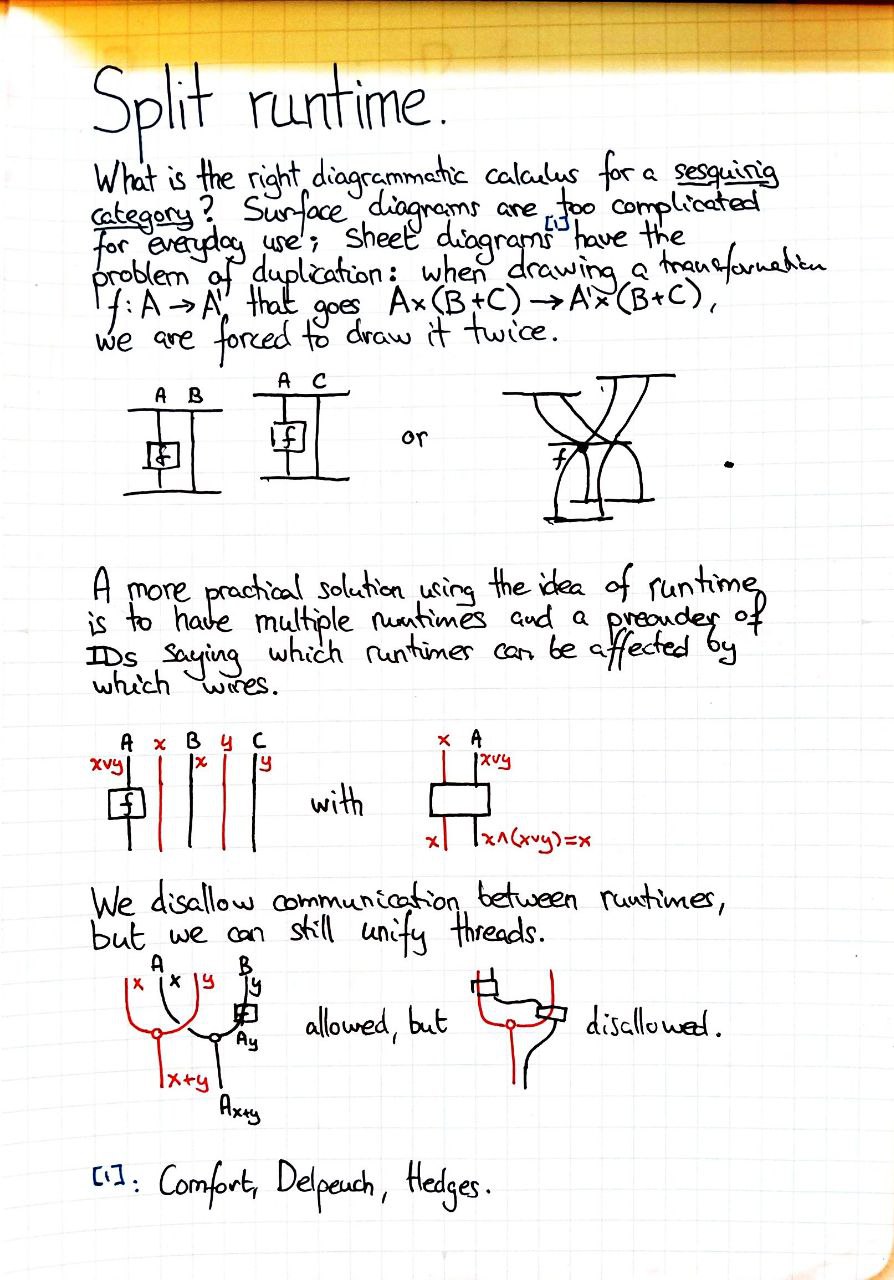 Split runtime.
What is the right diagrammatic calculus for a sesquirig
category? Surface diagrams are too complicated
for everyday use; sheet diagrams[1] have the
problem of duplication: when drawing a transformation
f: A → A' that goes A×(B+C) → A'×(B+C),
we are forced to draw it twice.
A B A C
f f or f .
A more practical solution using the idea of runtime
is to have multiple runtimes and a preorder of
IDs saying which runtimes can be affected by
which wires.
A x B y C x A
x∨y x y x∨y
f with
x x∧(x∨y)=x
We disallow communication between runtimes,
but we can still unify threads.
A B
x x y y
f allowed, but disallowed.
Ay
x+y
Ax+y
[1]: Comfort, Delpeuch, Hedges.